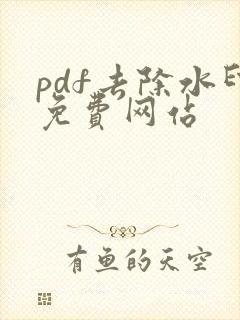 pdf去除水印
免費网站
有鱼的天空